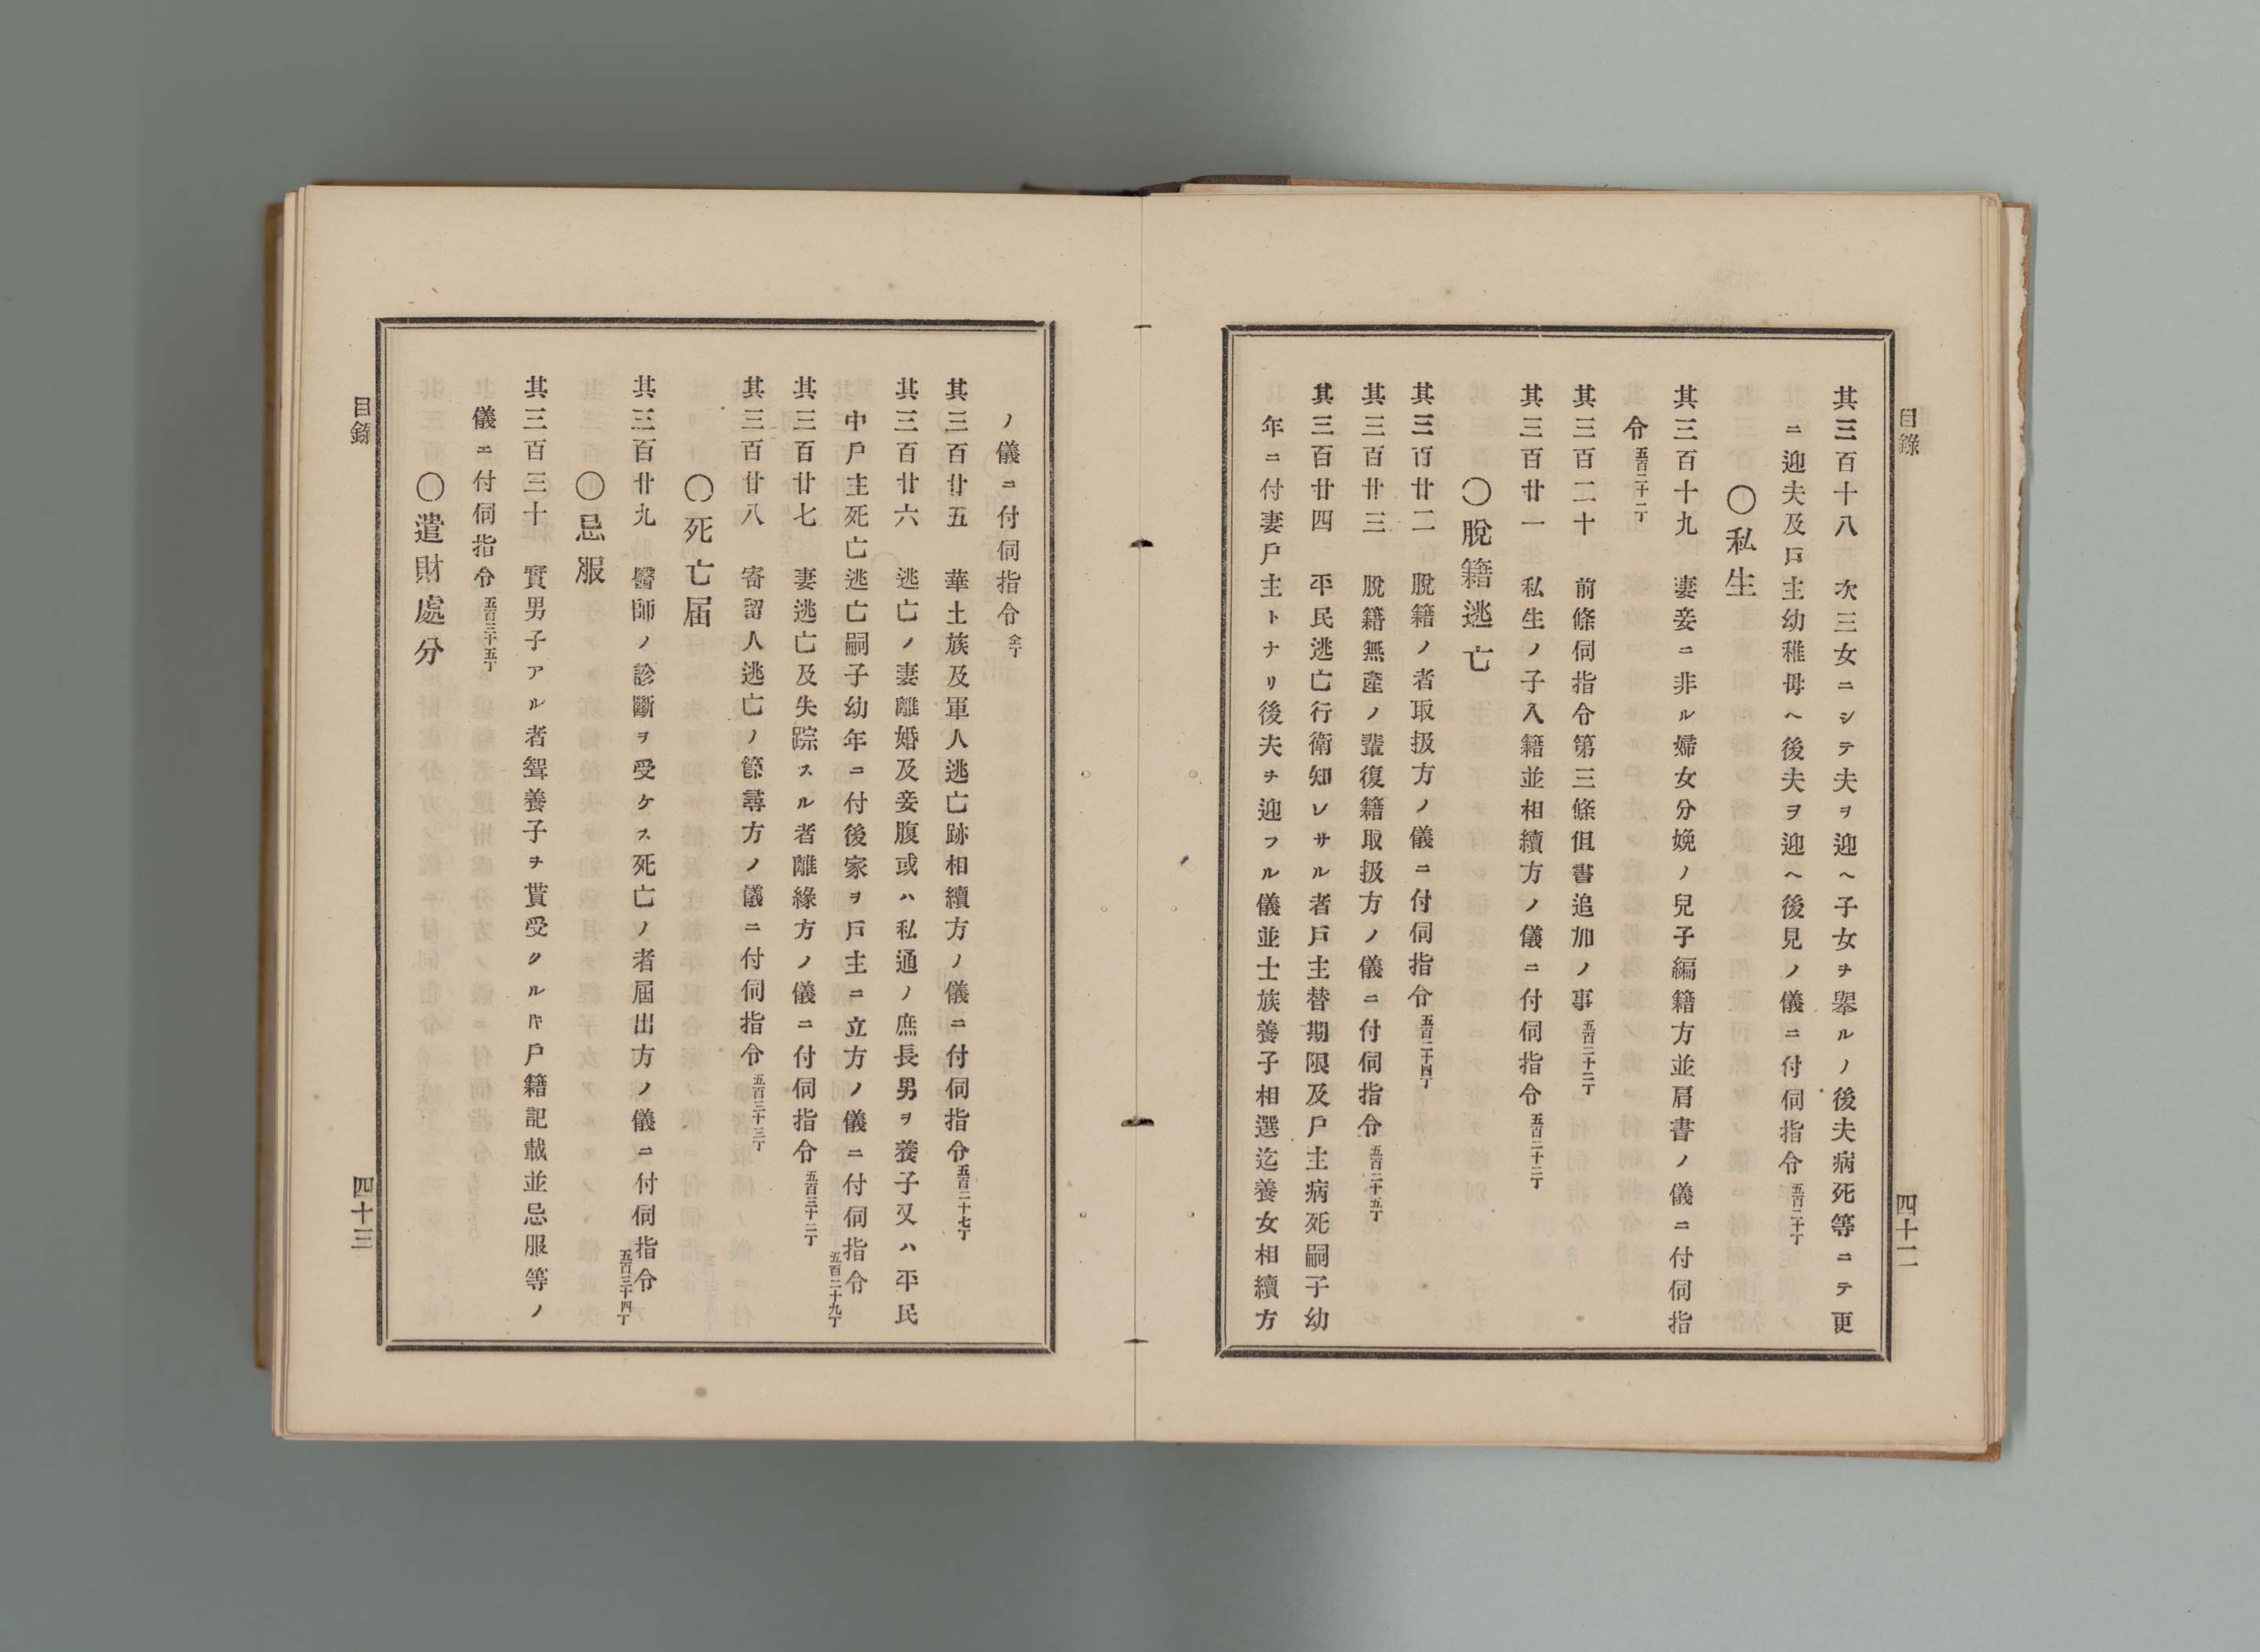 目錄
四十二
其三百十八　次三女ニシテ夫ヲ迎ヘ子女ヲ擧ルノ後夫病死等ニテ更
ニ迎夫及戸主幼稚母ヘ後夫ヲ迎ヘ後見ノ儀ニ付伺指令五百二十丁
〇私生
其三百十九　妻妾ニ非ル婦女分娩ノ兒子編籍方並肩書ノ儀ニ付伺指
令五百二十一丁
其三百二十　前條伺指令第三條但書追加ノ事五百二十二丁
其三百廿一　私生ノ子入籍並相續方ノ儀ニ付伺指令五百二十二丁
〇脫籍逃亡
其三百廿二　脫籍ノ者取扱方ノ儀ニ付伺指令五百二十四丁
其三百廿三　脫籍無產ノ輩復籍取扱方ノ儀ニ付伺指令五百二十五丁
其三百廿四　平民逃亡行衛知レサル者戸主替期限及戸主病死嗣子幼
年ニ付妻戸主トナリ後夫ヲ迎フル儀並士族養子相選迄養女相續方
ノ儀ニ付伺指令仝丁
其三百廿五　華士族及軍人逃亡跡相續方ノ儀ニ付伺指令五百二十七丁
其三百廿六　逃亡ノ妻離婚及妾腹或ハ私通ノ庶長男ヲ養子又ハ平民
中戸主死亡逃亡嗣子幼年ニ付後家ヲ戸主ニ立方ノ儀ニ付伺指令五百二十九丁
其三百廿七　妻逃亡及失踪スル者離緣方ノ儀ニ付伺指令五百三十二丁
其三百廿八　寄留人逃亡ノ節尋方ノ儀ニ付伺指令五百三十三丁
〇死亡届
其三百廿九　醫師ノ診斷ヲ受ケス死亡ノ者届出方ノ儀ニ付伺指令五百三十四丁
〇忌服
其三百三十　實男子アル者聟養子ヲ貰受クル𪜈戸籍記載並忌服等ノ
儀ニ付伺指令五百三十五丁
〇遣財處分
目錄
四十三